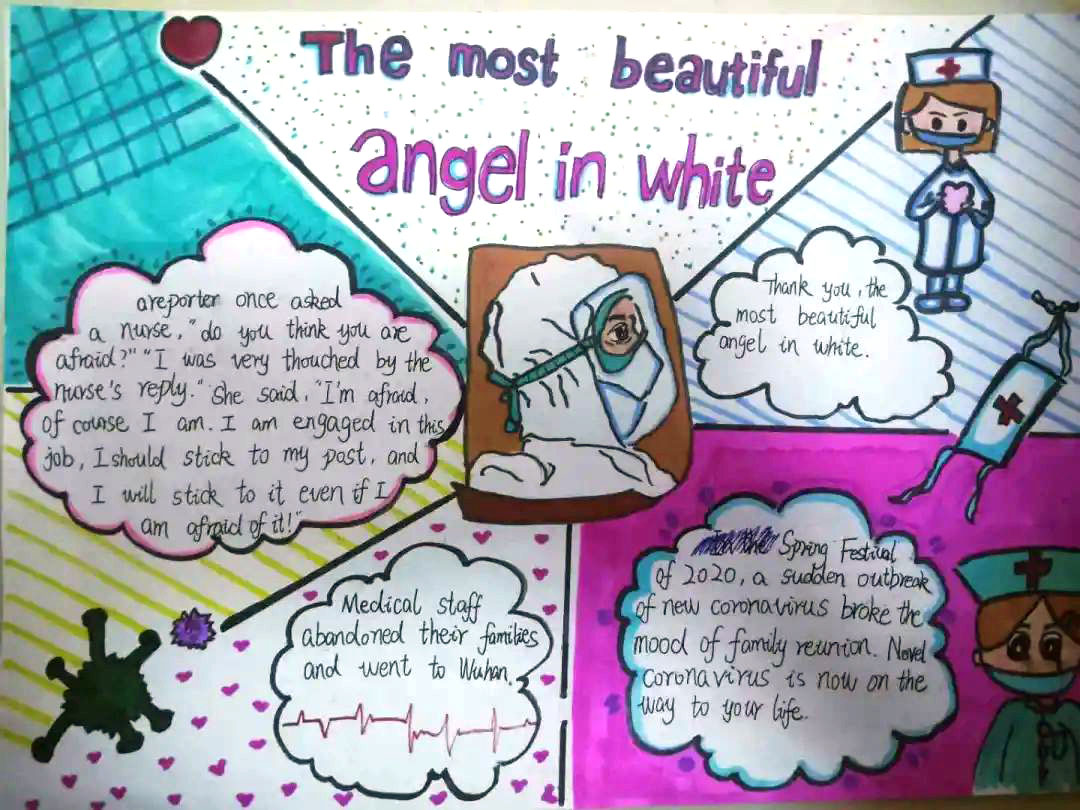 The most beautiful
angel in white
areporter once asked
a nurse, "do you think you are
afraid?" "I was very thouched by the
nurse's reply." She said, "I'm afraid,
of course I am. I am engaged in this
job, I should stick to my post, and
I will stick to it even if I
am afraid of it!"
Thank you, the
most beautiful
angel in white.
Medical staff
abandoned their families
and went to Wuhan.
Spring Festival
of 2020, a sudden outbreak
of new coronavirus broke the
mood of family reunion. Novel
coronavirus is now on the
way to your life.